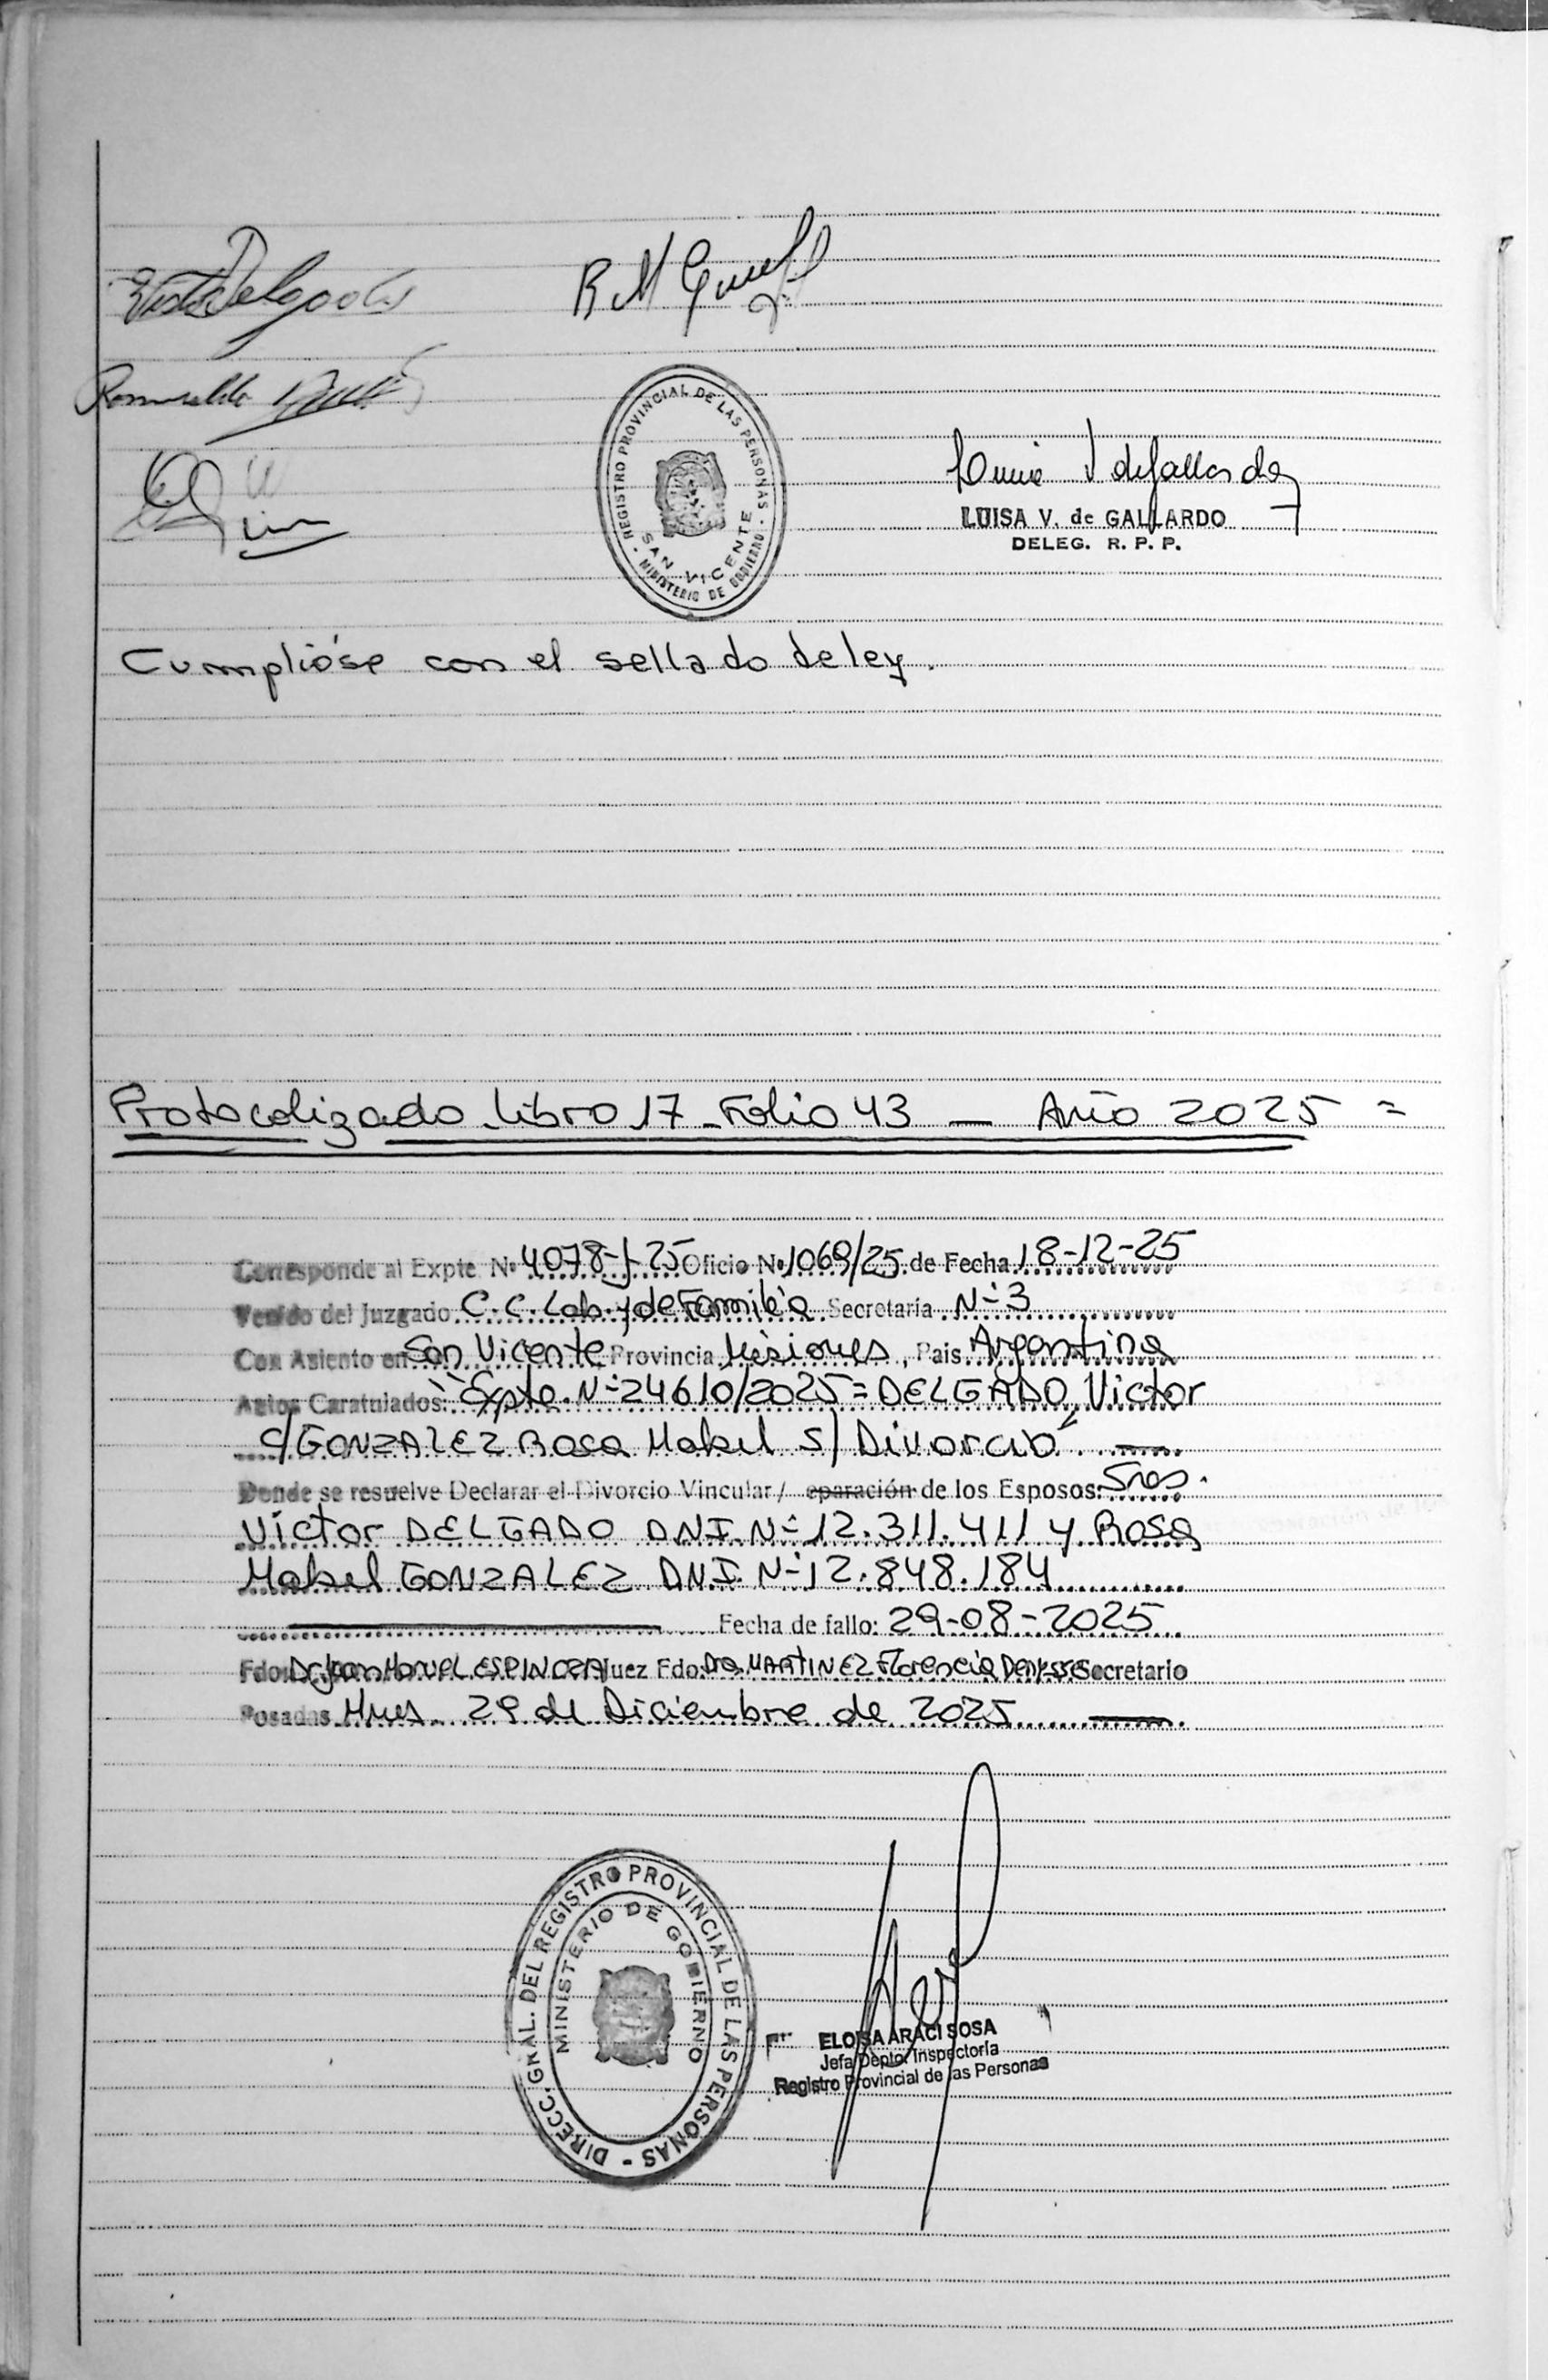 Victor Delgado
R M Gonz
Romualdo
REGISTRO PROVINCIAL DE LAS PERSONAS
SAN VICENTE
MINISTERIO DE GOBIERNO
Luisa V de Gallardo
LUISA V. de GALLARDO
DELEG. R. P. P.
Cumplióse con el sellado de ley.
Protocolizado libro 17 - Folio 43 — Año 2025 =
Corresponde al Expte Nº 4078-J-25 Oficio Nº 1069/25 de Fecha 18-12-25
Venido del Juzgado C.C. Lab. y de Familia Secretaría Nº 3
Con Asiento en San Vicente Provincia Misiones, Pais Argentina
Autos Caratulados: "Expte. Nº 24610/2025 = DELGADO, Victor
c/ GONZALEZ Rosa Mabel s/ Divorcio"
Donde se resuelve Declarar el Divorcio Vincular / eparación de los Esposos: Sres.
Victor DELGADO DNI. Nº 12.311.411 y Rosa
Mabel GONZALEZ DNI. Nº 12.848.184
Fecha de fallo: 29-08-2025
Fdo: Dr. Juan Manuel ESPINOZA Juez Fdo: Dra. MARTINEZ Florencia Denisse Secretario
Posadas Mnes. 29 de Diciembre de 2025
DIRECC. GRAL. DEL REGISTRO PROVINCIAL DE LAS PERSONAS
MINISTERIO DE GOBIERNO
ELOISA ARACI SOSA
Jefa Depto. Inspectoría
Registro Provincial de las Personas